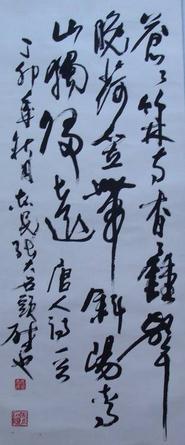 蒼々竹林寺杳々鐘聲
晚荷笠帶斜陽青
山獨歸遠 唐人詩一首
丁卯年秋月